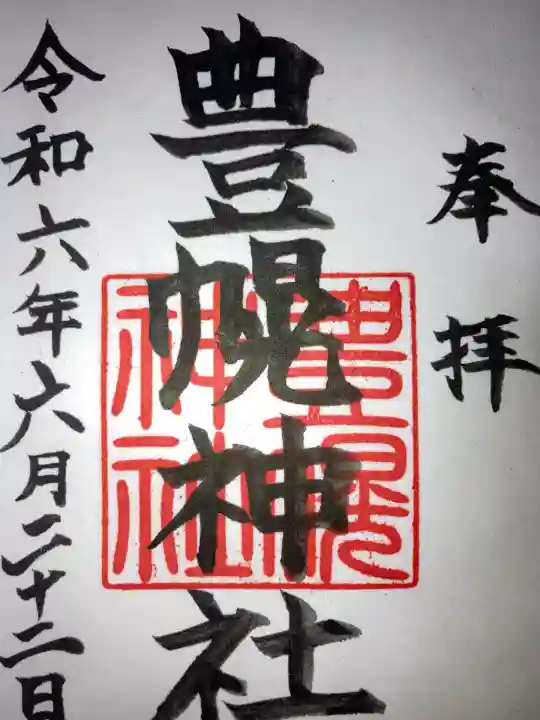 奉拝
豊幌神社
豊幌神社
令和六年六月二十二日